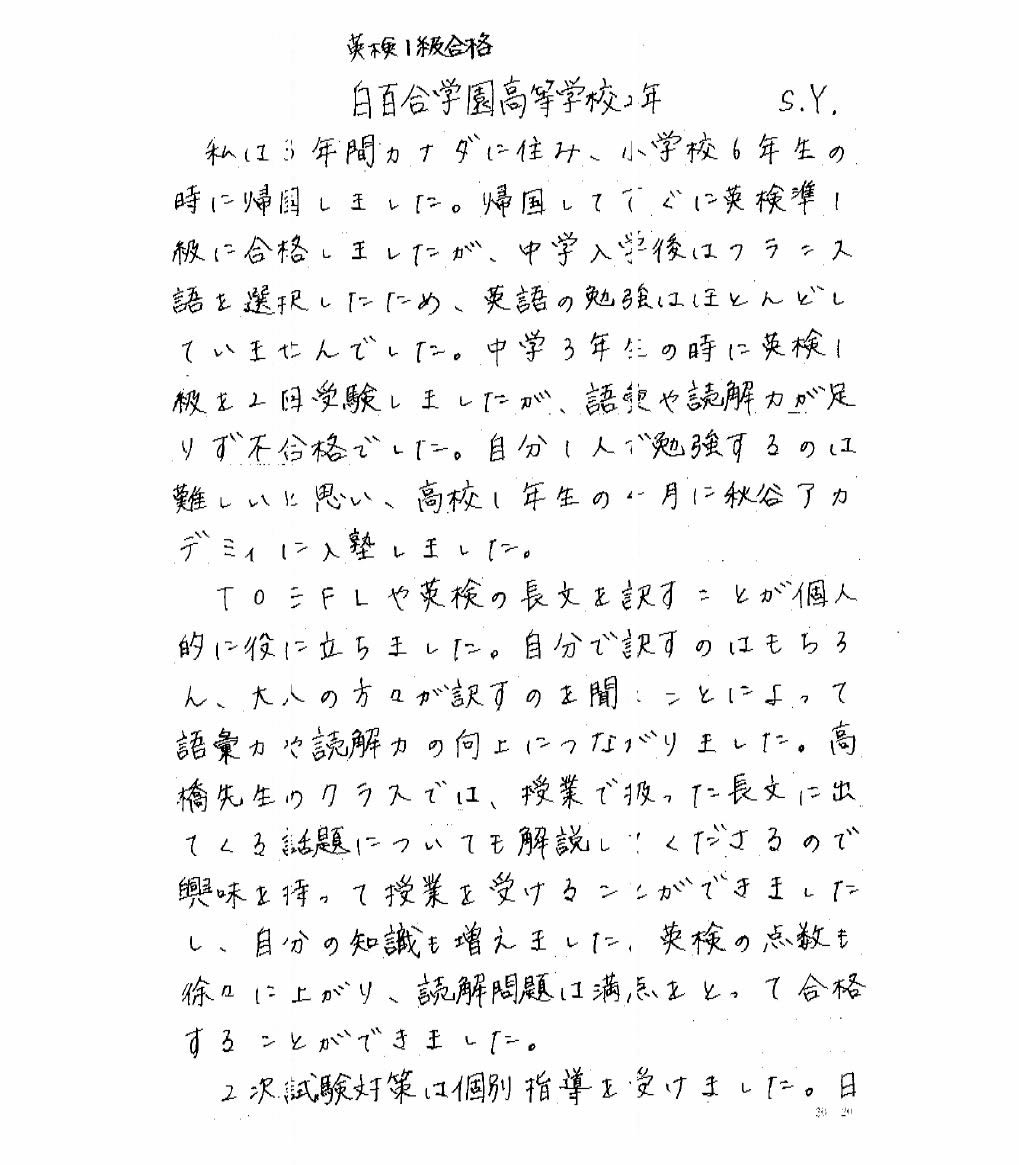 英検1級合格
白百合学園高等学校2年 S.Y.
私は3年間カナダに住み、小学校6年生の
時に帰国しました。帰国してすぐに英検準1
級に合格しましたが、中学入学後はフランス
語を選択したため、英語の勉強はほとんどし
ていませんでした。中学3年生の時に英検1
級を2回受験しましたが、語彙や読解力が足
りず不合格でした。自分1人で勉強するのは
難しいと思い、高校1年生の 月に秋谷アカ
デミィに入塾しました。
TOEFLや英検の長文を訳すことが個人
的に役に立ちました。自分で訳すのはもちろ
ん、大人の方々が訳すのを聞くことによって
語彙力や読解力の向上につながりました。高
橋先生のクラスでは、授業で扱った長文に出
てくる話題についても解説してくださるので
興味を持って授業を受けることができました
し、自分の知識も増えました。英検の点数も
徐々に上がり、読解問題は満点をとって合格
することができました。
2次試験対策は個別指導を受けました。日
20 20